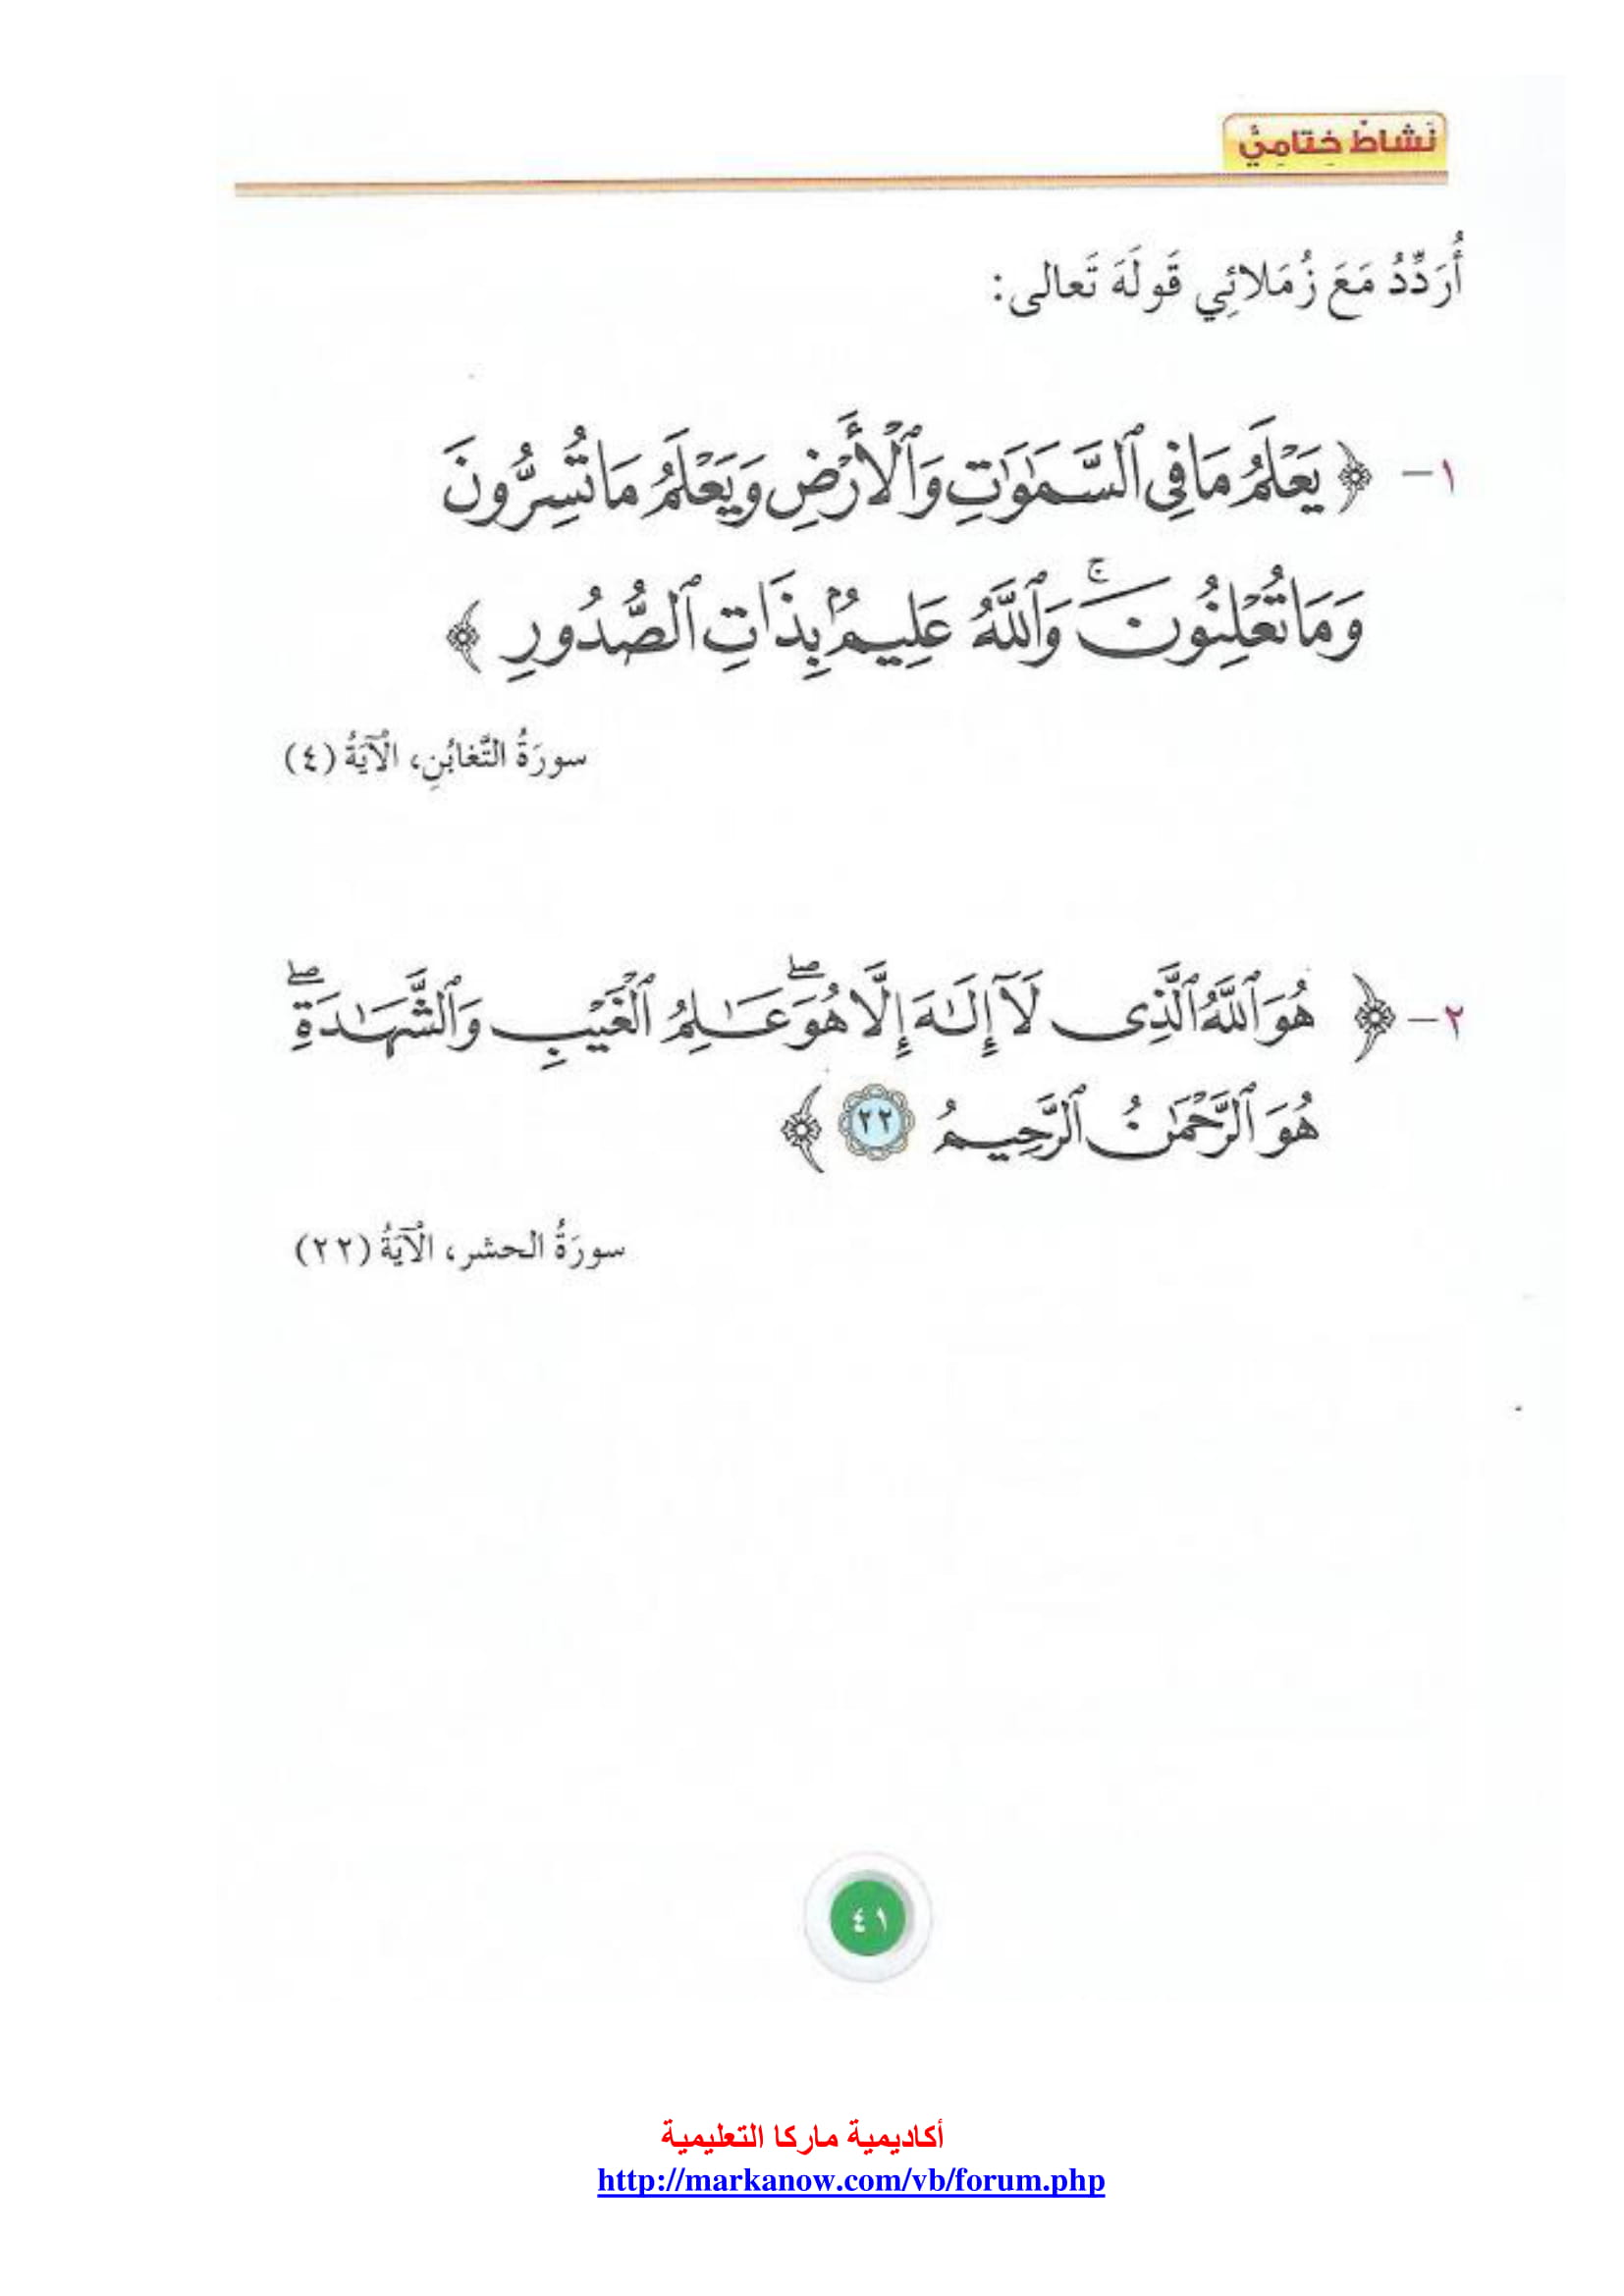 نَشاطٌ خِتامِيٌّ
أُرَدِّدُ مَعَ زُمَلائِي قَولَهَ تَعالى:
١- ﴿ يَعْلَمُ مَا فِي ٱلسَّمَٰوَٰتِ وَٱلْأَرْضِ وَيَعْلَمُ مَا تُسِرُّونَ
وَمَا تُعْلِنُونَ ۚ وَٱللَّهُ عَلِيمٌۢ بِذَاتِ ٱلصُّدُورِ ﴾
سورَةُ التَّغابُنِ، الْآيَةُ (٤)
٢- ﴿ هُوَ ٱللَّهُ ٱلَّذِى لَآ إِلَٰهَ إِلَّا هُوَ ۖ عَٰلِمُ ٱلْغَيْبِ وَٱلشَّهَٰدَةِ ۖ
هُوَ ٱلرَّحْمَٰنُ ٱلرَّحِيمُ ٢٢ ﴾
سورَةُ الحشر، الْآيَةُ (٢٢)
٤١
أكاديمية ماركا التعليمية
http://markanow.com/vb/forum.php